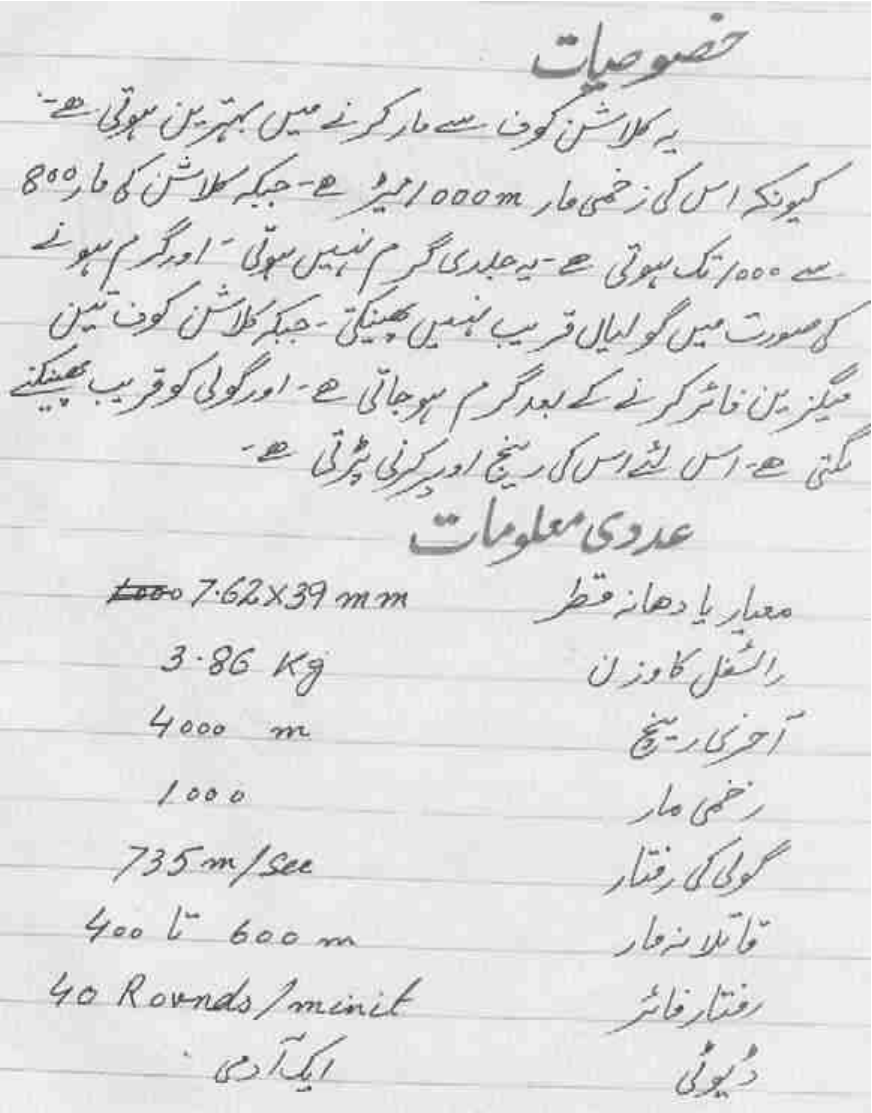 خصوصیات
یہ کلاشن کوف سے مار کرنے میں بہترین ہوتی ہے۔
کیونکہ اس کی زخمی مار 1000m میٹر ہے۔ جبکہ کلاشن کی مار 800
سے 1000 تک ہوتی ہے۔ یہ جلدی گرم نہیں ہوتی۔ اور گرم ہونے
کی صورت میں گولیاں قریب نہیں پھینکتی۔ جبکہ کلاشن کوف تین
میگزین فائر کرنے کے بعد گرم ہوجاتی ہے۔ اور گولی کو قریب پھینکنے
لگتی ہے۔ اس لئے اس کی رینج اوپر کرنی پڑتی ہے۔
عددی معلومات
معیار یا دھانہ قطر 7.62x39 mm
رائفل کا وزن 3.86 Kg
آخری رینج 4000 m
زخمی مار 1000
گولی کی رفتار 735 m/sec
قاتلانہ مار 400 تا 600 m
رفتار فائر 40 Rounds/minit
ڈیوٹی ایک آدمی